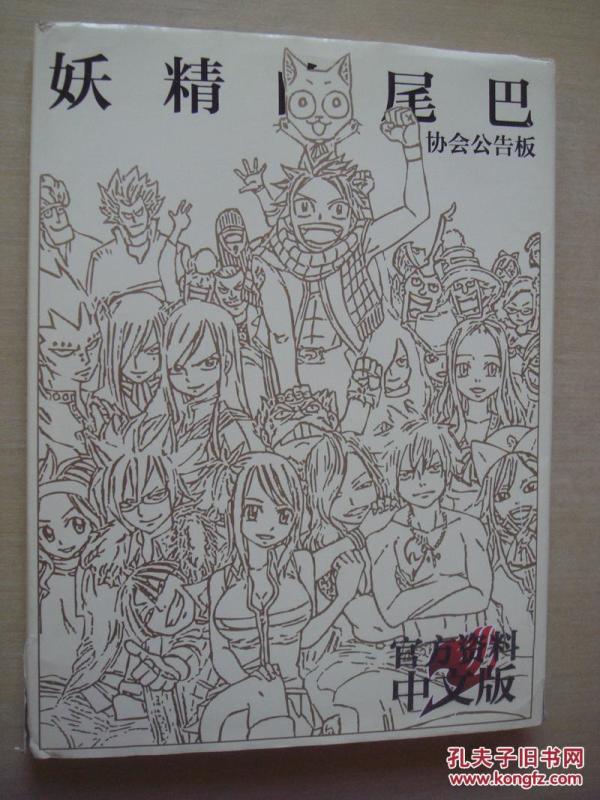 妖精 尾巴
协会公告板
官方资料
中文版
孔夫子旧书网
www.kongfz.com